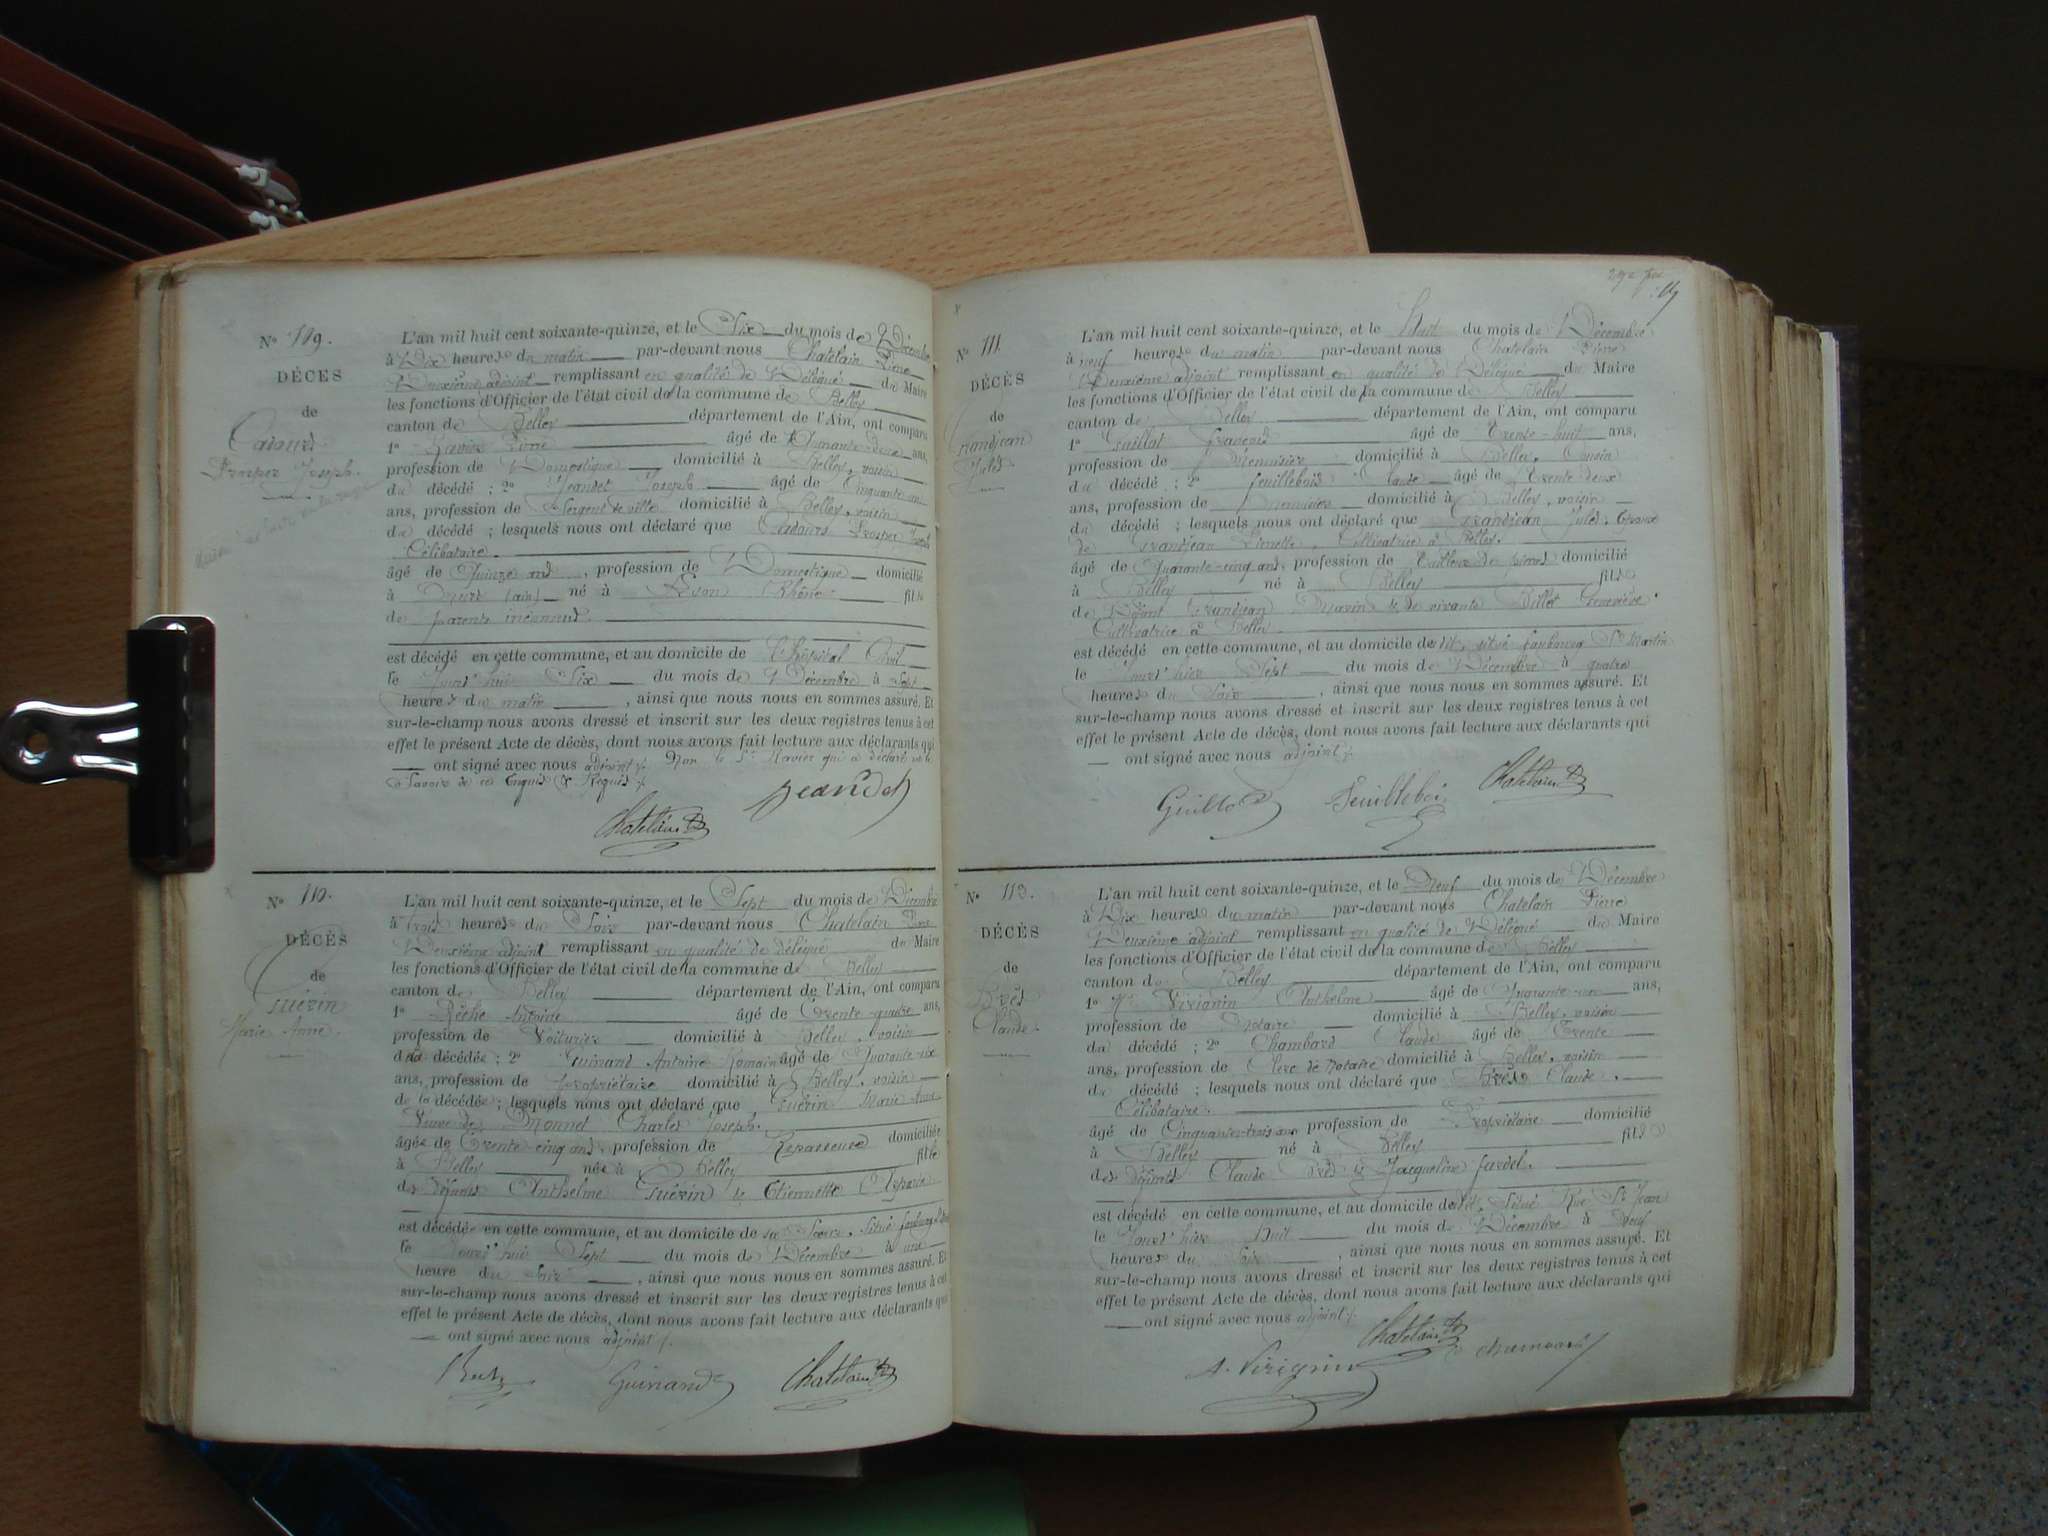 N° 109.
DÉCES
de
Cadours
Prosper Joseph.
L'an mil huit cent soixante-quinze, et le Six du mois de Décembre
à Dix heures du matin par-devant nous Chatelain Pierre
Deuxième adjoint remplissant en qualité de Délégué du Maire
les fonctions d'Officier de l'état civil de la commune de Belley
canton de Belley département de l'Ain, ont comparu
1° Pierre âgé de Quarante-deux ans,
profession de Domestique domicilié à Belley, voisin
du décédé ; 2° Jeandet Joseph âgé de Cinquante-un
ans, profession de Sergent de ville domicilié à Belley, voisin
du décédé ; lesquels nous ont déclaré que Cadours Prosper Joseph
Célibataire.
âgé de Quinze ans, profession de Domestique domicilié
à (ain) né à Lyon Rhône fils
de parents inconnus.
est décédé en cette commune, et au domicile de l'hôpital Civil
le Jourd'hui Six du mois de Décembre à Sept
heures du matin, ainsi que nous nous en sommes assuré. Et
sur-le-champ nous avons dressé et inscrit sur les deux registres tenus à cet
effet le présent Acte de décès, dont nous avons fait lecture aux déclarants qui
ont signé avec nous adjoint Non le Sr qui a déclaré ne le
Savoir de ce Enquis & Requis
Jeandet
Chatelain
N° 110.
DÉCÈS
de
Guérin
Marie Anne.
L'an mil huit cent soixante-quinze, et le Sept du mois de Décembre
à trois heures du Soir par-devant nous Chatelain Pierre
Deuxième adjoint remplissant en qualité de délégué du Maire
les fonctions d'Officier de l'état civil de la commune de Belley
canton de Belley département de l'Ain, ont comparu
1° Antoine âgé de Trente-quatre ans,
profession de Voiturier domicilié à Belley, voisin
de la décédée ; 2° Guinand Antoine Romain âgé de Quarante-six
ans, profession de propriétaire domicilié à Belley, voisin
de la décédée ; lesquels nous ont déclaré que Guérin Marie Anne
Veuve de Monnet Charles Joseph.
âgée de Trente cinq ans, profession de Repasseuse domiciliée
à Belley née à Belley fille
des défunts Anthelme Guérin & Etiennette
est décédée en cette commune, et au domicile de sa Soeur, Situé faubourg
le Jourd'hui Sept du mois de Décembre à une
heure du Soir, ainsi que nous nous en sommes assuré. Et
sur-le-champ nous avons dressé et inscrit sur les deux registres tenus à cet
effet le présent Acte de décès, dont nous avons fait lecture aux déclarants qui
ont signé avec nous adjoint
Guinand
Chatelain
N° 111.
DÉCÈS
de
Grandjean
Jules
L'an mil huit cent soixante-quinze, et le Huit du mois de Décembre
à neuf heures du matin par-devant nous Chatelain Pierre
Deuxième adjoint remplissant en qualité de Délégué du Maire
les fonctions d'Officier de l'état civil de la commune de Belley
canton de Belley département de l'Ain, ont comparu
1° Guillot François âgé de Trente-huit ans,
profession de Menuisier domicilié à Belley, Cousin
du décédé ; 2° Feuillebois Claude âgé de Trente deux
ans, profession de Menuisier domicilié à Belley, voisin
du décédé ; lesquels nous ont déclaré que Grandjean Jules, Epoux
de Grandjean Pierrette, Cultivatrice à Belley.
âgé de Quarante-cinq ans, profession de tailleur de pierres domicilié
à Belley né à Belley fils
de Défunt Grandjean & de vivante Billet Geneviève
Cultivatrice à Belley
est décédé en cette commune, et au domicile de lui, situé faubourg St Martin
le Jour d'hier Sept du mois de Décembre à quatre
heures du Soir, ainsi que nous nous en sommes assuré. Et
sur-le-champ nous avons dressé et inscrit sur les deux registres tenus à cet
effet le présent Acte de décès, dont nous avons fait lecture aux déclarants qui
ont signé avec nous adjoint
Guillot
Feuillebois
Chatelain
N° 113.
DÉCÈS
de
Brès
Claude.
L'an mil huit cent soixante-quinze, et le Neuf du mois de Décembre
à Dix heures du matin par-devant nous Chatelain Pierre
Deuxième adjoint remplissant en qualité de Délégué du Maire
les fonctions d'Officier de l'état civil de la commune de Belley
canton de Belley département de l'Ain, ont comparu
1° Mr Virignin Anthelme âgé de Quarante-un ans,
profession de Notaire domicilié à Belley, voisin
du décédé ; 2° Chambard Claude âgé de Trente
ans, profession de Clerc de Notaire domicilié à Belley, voisin
du décédé ; lesquels nous ont déclaré que Brès Claude,
Célibataire.
âgé de Cinquante-trois ans profession de Propriétaire domicilié
à Belley né à Belley fils
des défunts Claude Brès & Jacqueline Jardel.
est décédé en cette commune, et au domicile de lui, Situé Rue St Jean
le Jour d'hier Huit du mois de Décembre à Neuf
heures du Soir, ainsi que nous nous en sommes assuré. Et
sur-le-champ nous avons dressé et inscrit sur les deux registres tenus à cet
effet le présent Acte de décès, dont nous avons fait lecture aux déclarants qui
ont signé avec nous adjoint
Chatelain
A. Virignin
Chambard